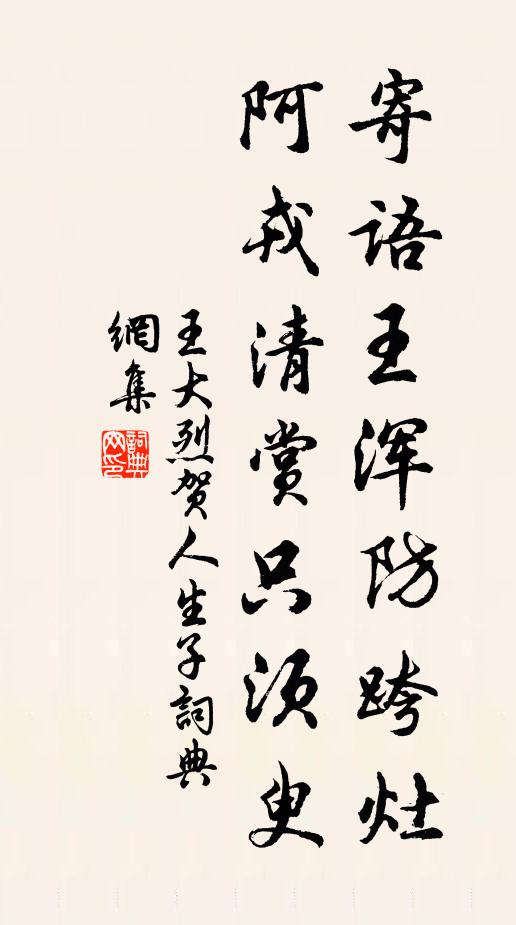 寄语王浑防跨灶
阿戎清赏只须臾
王大烈贺人生子詞典
網集
詞典
网印